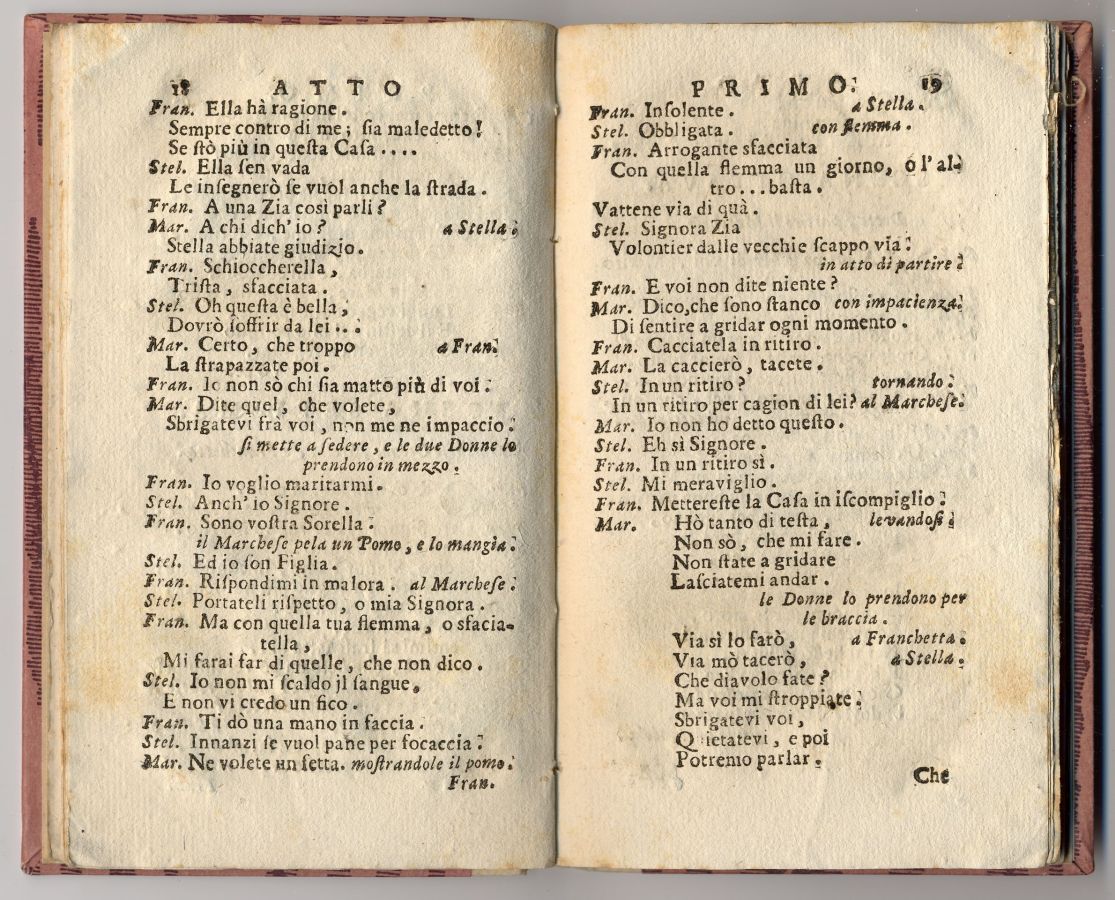 18 ATTO
Fran. Ella hà ragione.
Sempre contro di me; ſia maledetto!
Se ſtò più in queſta Caſa ....
Stel. Ella ſen vada
Le inſegnerò ſe vuol anche la ſtrada.
Fran. A una Zia così parli?
Mar. A chi dich' io? a Stella.
Stella abbiate giudizio.
Fran. Schioccherella,
Triſta, sfacciata.
Stel. Oh queſta è bella,
Dovrò ſoffrir da lei...
Mar. Certo, che troppo a Fran.
La ſtrapazzate poi.
Fran. Io non sò chi ſia matto più di voi.
Mar. Dite quel, che volete,
Sbrigatevi frà voi, non me ne impaccio.
ſi mette a ſedere, e le due Donne lo
prendono in mezzo.
Fran. Io voglio maritarmi.
Stel. Anch' io Signore.
Fran. Sono voſtra Sorella.
il Marcheſe pela un Pomo, e lo mangia.
Stel. Ed io ſon Figlia.
Fran. Riſpondimi in malora. al Marcheſe.
Stel. Portateli riſpetto, o mia Signora.
Fran. Ma con quella tua flemma, o sfacia-
tella,
Mi farai far di quelle, che non dico.
Stel. Io non mi ſcaldo jl ſangue,
E non vi credo un fico.
Fran. Ti dò una mano in faccia.
Stel. Innanzi ſe vuol pane per focaccia.
Mar. Ne volete un fetta. moſtrandole il pomo.
Fran.
PRIMO. 19
Fran. Inſolente. a Stella.
Stel. Obbligata. con flemma.
Fran. Arrogante sfacciata
Con quella flemma un giorno, ó l' al-
tro...baſta.
Vattene via di quà.
Stel. Signora Zia
Volontier dalle vecchie ſcappo via.
in atto di partire.
Fran. E voi non dite niente?
Mar. Dico,che ſono ſtanco con impacienza.
Di ſentire a gridar ogni momento.
Fran. Cacciatela in ritiro.
Mar. La caccierò, tacete.
Stel. In un ritiro? tornando.
In un ritiro per cagion di lei? al Marcheſe.
Mar. Io non ho detto queſto.
Stel. Eh sì Signore.
Fran. In un ritiro sì.
Stel. Mi meraviglio.
Fran. Mettereſte la Caſa in iſcompiglio.
Mar. Hò tanto di teſta, levandoſi.
Non sò, che mi fare.
Non ſtate a gridare
Laſciatemi andar.
le Donne lo prendono per
le braccia.
Via sì lo farò, a Franchetta.
Via mò tacerò, a Stella.
Che diavolo fate?
Ma voi mi ſtroppiate.
Sbrigatevi voi,
Quietatevi, e poi
Potremo parlar.
Che